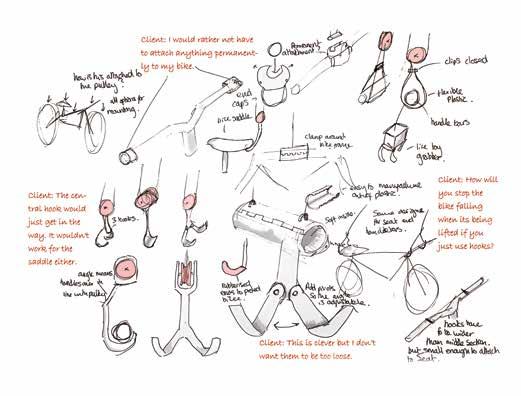 Client: I would rather not have
to attach anything permanent-
ly to my bike.
Permanent
attachment
clips closed
how is his attached to
the pulley?
all options for
mounting.
end
caps
flexible
plastic.
handle bars
bike saddle
clamp around
bike frame
like toy
grabber.
Client: The cen-
tral hook would
just get in the
way. It wouldn't
work for the
saddle either.
3 hooks.
easy to manufacture
out of plastic.
Soft inside.
Same designs
for seat and
handlebars.
Client: How will
you stop the
bike falling
when its being
lifted if you
just use hooks?
angle means
handlebars are in
line with pulley
Rubberised
ends to protect
bike.
Add pivots
So the angle
is adjustable.
Client: This is clever but I don't
want them to be too loose.
hooks have
to be wider
than middle section.
but small enough to attach
to seat.